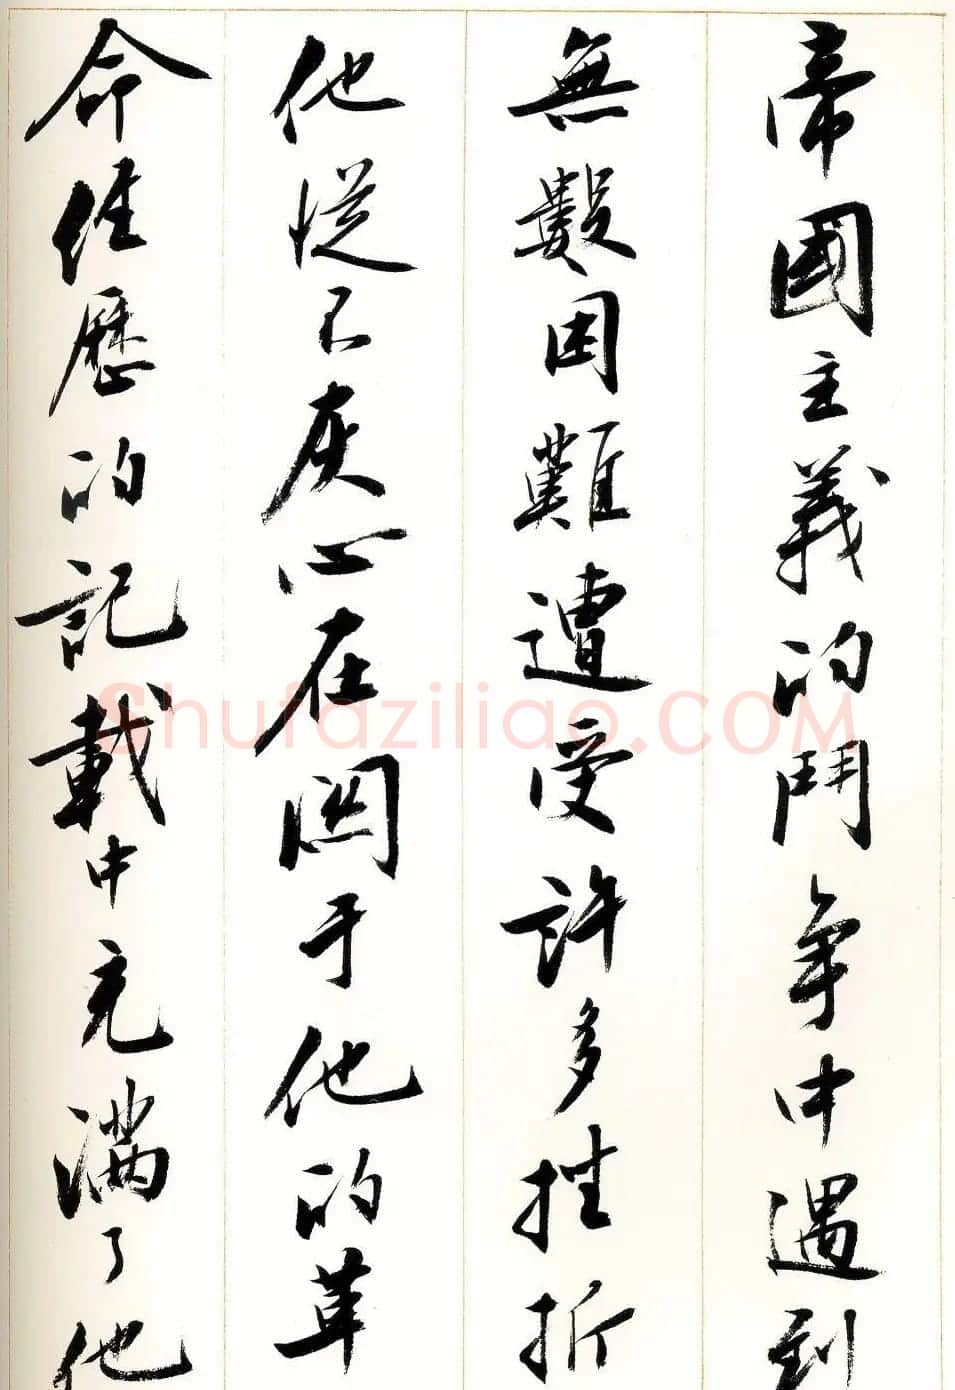 帝國主義的鬥争中遇到
無數困難遭受許多挫折
他從不灰心在関于他的革
命經歷的記載中充滿了他
Shufaziliao.COM